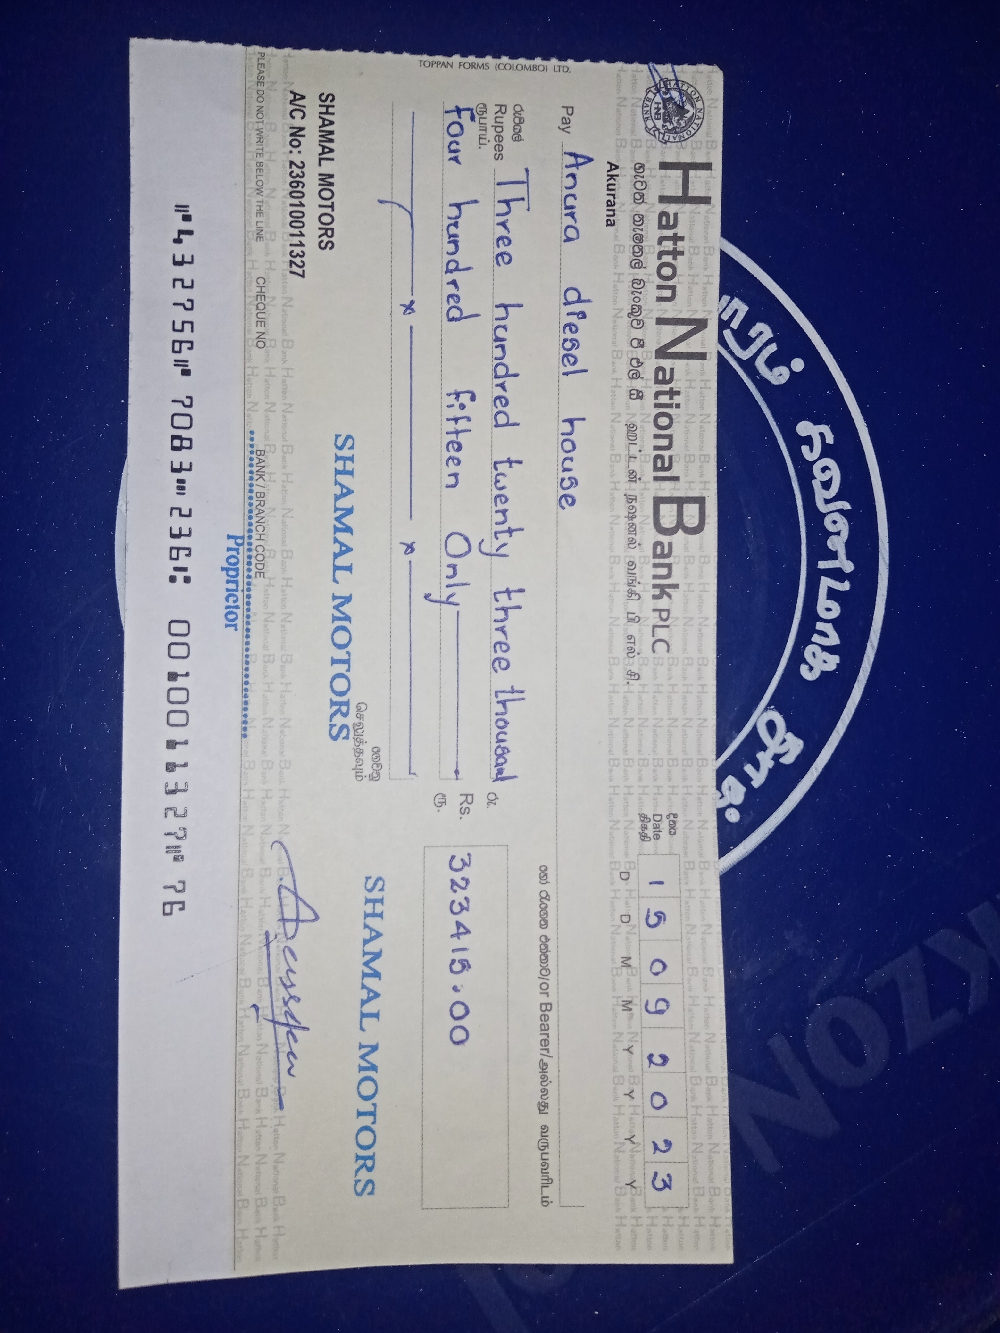 TOPPAN FORMS (COLOMBO) LTD.
HATTON NATIONAL BANK PLC
හැටන් නැෂනල් බැංකුව පී එල් සී ஹட்டன் நஷனல் வங்கி பி எல் சி.
Akurana
දිනය
Date
திகதி
1 5 0 9 2 0 2 3
D D M M Y Y Y Y
Pay Anura diesel house
හෝ රැගෙන එන්නාට/or Bearer/அல்லது வருபவரிடம்
රුපියල්
Rupees
ரூபாய்.
Three hundred twenty three thousand
four hundred fifteen Only
රු.
Rs.
ரூ.
323415.00
ගෙවනු
செலுத்தவும்
SHAMAL MOTORS
A/C No: 236010011327
SHAMAL MOTORS
SHAMAL MOTORS
PLEASE DO NOT WRITE BELOW THE LINE
CHEQUE NO
BANK / BRANCH CODE
Proprietor
⑈432756⑈ 7083⑉236⑆ 0010011327⑈ 76
கவனமாக